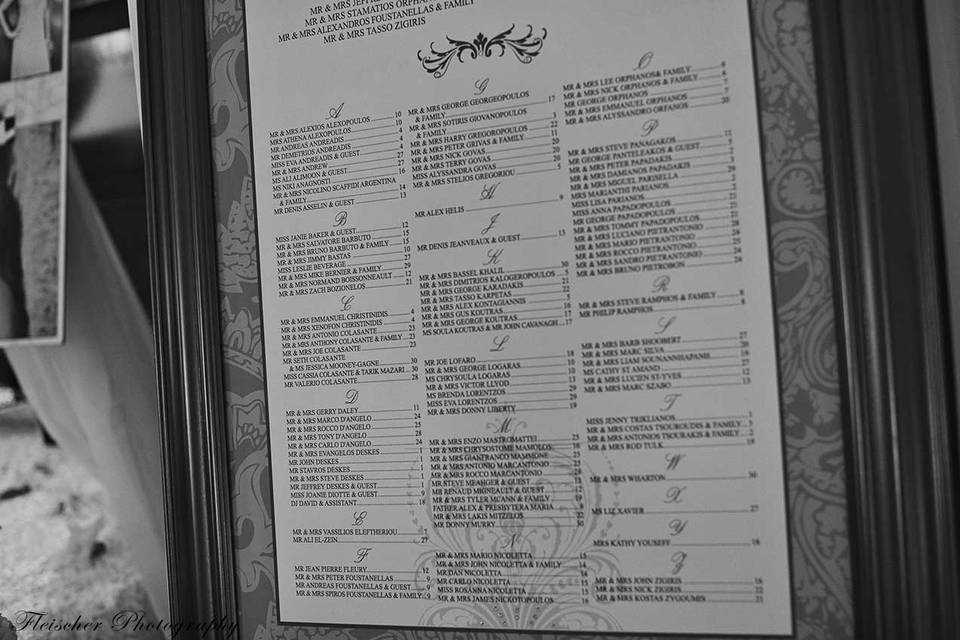 MR & MRS JEFFRE
MR & MRS STAMATIOS ORPHAN
MR & MRS ALEXANDROS FOUSTANELLAS & FAMILY
MR & MRS TASSO ZIGIRIS
A
MR & MRS ALEXIOS ALEXOPOULOS 10
MRS ATHENA ALEXOPOULOS 10
MR ANDREAS ANDREADIS 4
MR DEMETRIOS ANDREADIS 4
MISS EVA ANDREADIS & GUEST 4
MR & MRS ANDREW 27
MS ALI ALIMOON & GUEST 27
MS NIKI ANAGNOSTI 16
MR & MRS NICOLINO SCAFFIDI ARGENTINA
& FAMILY 14
MR DENIS ASSELIN & GUEST 13
B
MISS JANIE BAKER & GUEST 12
MR & MRS SALVATORE BARBUTO 15
MR & MRS BRUNO BARBUTO & FAMILY 15
MR & MRS JIMMY BASTAS 10
MISS LESLIE BEVERAGE 27
MR & MRS MIKE BERNIER & FAMILY 29
MR & MRS NORMAND BOISSONNEAULT 12
MR & MRS ZACH BOZIONELOS 21
C
MR & MRS EMMANUEL CHRISTINIDIS 4
MR & MRS XENOFON CHRISTINIDIS 4
MR & MRS ANTONIO COLASANTE 23
MR & MRS ANTHONY COLASANTE & FAMILY 23
MR & MRS JOE COLASANTE 23
MR SETH COLASANTE
& MS JESSICA MOONEY-GAGNE 30
MISS CASSIA COLASANTE & TARIK MAZARI 30
MR VALERIO COLASANTE 28
D
MR & MRS GERRY DALEY 11
MR & MRS MARCO D'ANGELO 24
MR & MRS ROCCO D'ANGELO 25
MR & MRS TONY D'ANGELO 28
MR & MRS CARLO D'ANGELO 24
MR & MRS EVANGELOS DESKES 1
MR JOHN DESKES 1
MR STAVROS DESKES 1
MR & MRS STEVE DESKES 1
MR JEFFREY DESKES & GUEST 1
MISS JOANIE DIOTTE & GUEST 9
DJ DAVID & ASSISTANT 18
E
MR & MRS VASSILIOS ELEFTHERIOU 7
MR ALI EL-ZEIN 27
F
MR JEAN PIERRE FLEURY 12
MR & MRS PETER FOUSTANELLAS 9
MR ANDREAS FOUSTANELLAS & GUEST 9
MR & MRS SPIROS FOUSTANELLAS & FAMILY 9
G
MR & MRS GEORGE GEORGEOPOULOS
& FAMILY 17
MR & MRS SOTIRIS GIOVANOPOULOS
& FAMILY 3
MR & MRS HARRY GREGOROPOULOS 22
MR & MRS PETER GRIVAS & FAMILY 11
MR & MRS NICK GOVAS 20
MR & MRS TERRY GOVAS 20
MISS ALYSSANDRA GOVAS 20
MR & MRS STELIOS GREGORIOU 5
H
MR ALEX HELIS 9
J
MR DENIS JEANVEAUX & GUEST 13
K
MR & MRS BASSEL KHALIL 30
MR & MRS DIMITRIOS KALOGEROPOULOS 5
MR & MRS GEORGE KARADAKIS 21
MR & MRS TASSO KARPETAS 22
MR & MRS ALEX KONTAGIANNIS 5
MR & MRS GUS KOUTRAS 16
MR & MRS GEORGE KOUTRAS 17
MS SOULA KOUTRAS & MR JOHN CAVANAGH 17
L
MR JOE LOFARO 18
MR & MRS GEORGE LOGARAS 10
MS CHRYSOULA LOGARAS 10
MR & MRS VICTOR LLYOD 13
MS BRENDA LORENTZOS 29
MISS EVA LORENTZOS 29
MR & MRS DONNY LIBERTY 19
M
MR & MRS ENZO MASTROMATTEI 25
MR & MRS CHRYSOSTOME MAMOLOS 16
MR & MRS GIANFRANCO MAMMONE 25
MR & MRS ANTONIO MARCANTONIO 23
MR & MRS ROCCO MARCANTONIO 28
MR STEVE MEAHGER & GUEST 13
MR RENAUD MIGNEAULT & GUEST 12
MR & MRS TYLER MCANN & FAMILY 19
FATHER ALEX & PRESBYTERA MARIA 8
MR & MRS LAKIS MITZELOS 22
MR DONNY MURRY 30
N
MR & MRS MARIO NICOLETTA 15
MR & MRS JOHN NICOLETTA & FAMILY 14
MR DAN NICOLETTA 14
MR CARLO NICOLETTA 15
MISS ROSANNA NICOLETTA 15
MR & MRS JAMES NICKOTOPOULOS 16
O
MR & MRS LEE ORPHANOS& FAMILY 6
MR & MRS NICK ORPHANOS & FAMILY 6
MR GEORGE ORPHANOS 7
MR & MRS EMMANUEL ORPHANOS 7
MR & MRS ALYSSANDRO ORFANOS 20
P
MR & MRS STEVE PANAGAKOS 11
MR GEORGE PANTELEAKOS & GUEST 5
MR & MRS PETER PAPADAKIS 2
MR & MRS DAMIANOS PAPADAKIS 3
MR & MRS MIGUEL PARISELLA 29
MRS MARIANTHI PARIANOS 2
MISS LISA PARIANOS 2
MISS ANNA PAPADOPOULOS 21
MR GEORGE PAPADOPOULOS 21
MR & MRS TOMMY PAPADOPOULOS 21
MR & MRS LUCIANO PIETRANTONIO 28
MR & MRS MARIO PIETRANTONIO 24
MR & MRS ROCCO PIETRANTONIO 25
MR & MRS SANDRO PIETRANTONIO 24
MR & MRS BRUNO PIETROBON 24
R
MR & MRS STEVE RAMPHOS & FAMILY 8
MR PHILIP RAMPHOS 8
S
MR & MRS BARB SHOOBERT 27
MR & MRS MARC SILVA 20
MR & MRS LIAM SOUNANNHAPANH 19
MS CATHY ST AMAND 27
MR & MRS LUCIEN ST-YVES 12
MR & MRS MARC SZABO 13
T
MISS JENNY TRIKLIANOS 1
MR & MRS COSTAS TSOUROUDIS & FAMILY 3
MR & MRS ANTONIOS TSOURAKIS & FAMILY 2
MR & MRS ROD TULK 19
W
MR & MRS WHARTON 30
X
MS LIZ XAVIER 27
Y
MRS KATHY YOUSEFF 18
Z
MR & MRS JOHN ZIGIRIS 16
MR & MRS NICK ZIGIRIS 22
MR & MRS KOSTAS ZYGOUMIS 21
Fleischer Photography